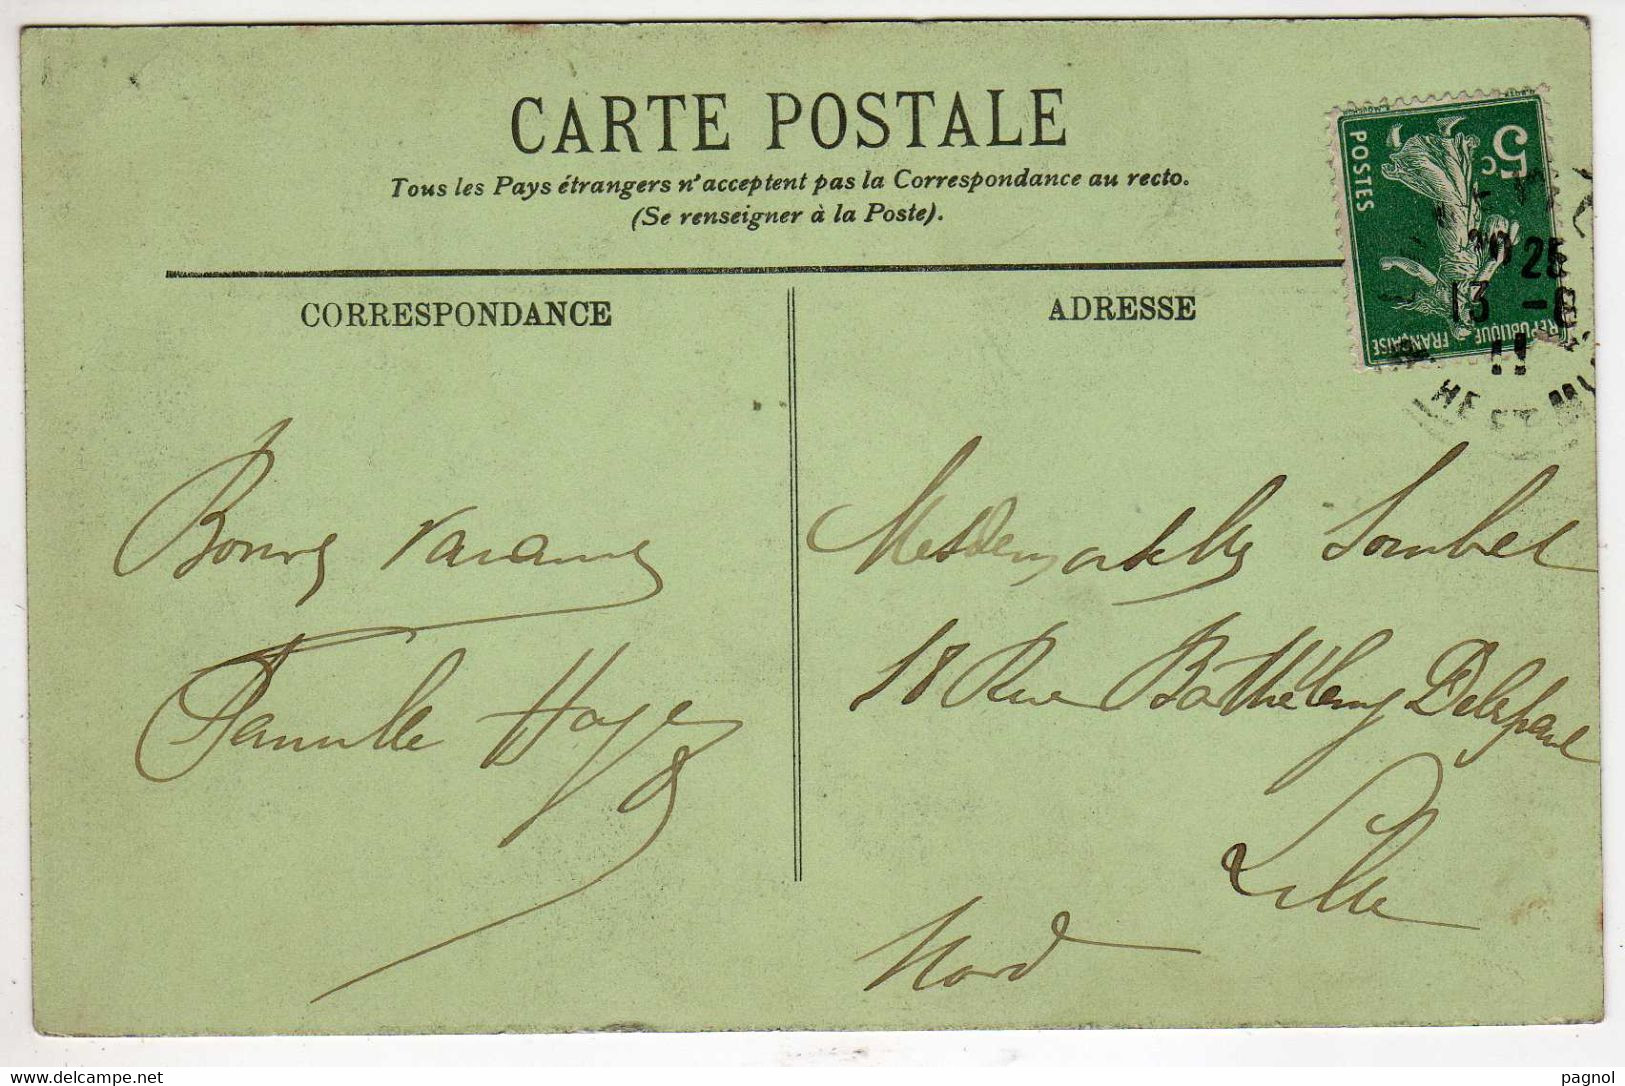 CARTE POSTALE
Tous les Pays étrangers n'acceptent pas la Correspondance au recto.
(Se renseigner à la Poste).
5c
POSTES
REPUBLIQUE FRANÇAISE
20 25
13 -6
11
CORRESPONDANCE
ADRESSE
Bonnes vacances
Famille Hoye
Mesdemoiselles Soubet
18 Rue Barthélemy Delespaul
Lille
Nord
www.delcampe.net
pagnol